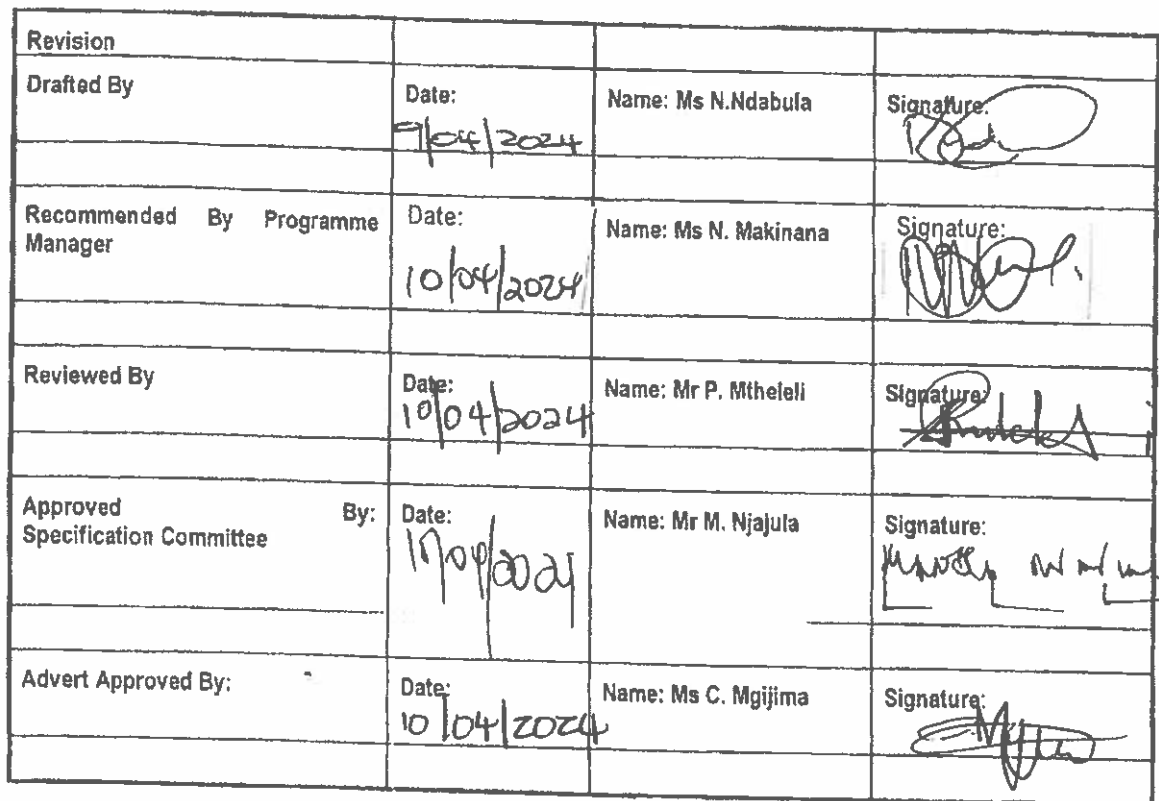 Revision
Drafted By
Date:
9/04/2024
Name: Ms N.Ndabula
Signature:
Recommended By Programme
Manager
Date:
10/04/2024
Name: Ms N. Makinana
Signature:
Reviewed By
Date:
10/04/2024
Name: Mr P. Mtheleli
Signature:
Approved By:
Specification Committee
Date:
Name: Mr M. Njajula
Signature:
Advert Approved By:
Date:
10/04/2024
Name: Ms C. Mgijima
Signature: